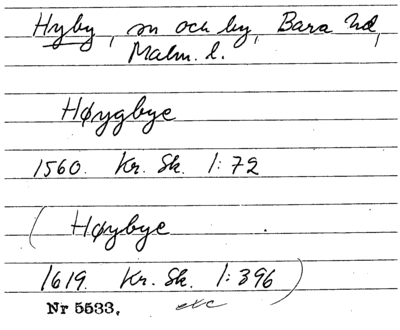 Hyby, sn och by, Bara hd,
Malm. l.
Høygbye
1560. Kr. Sk. 1:72
( Høybye
1619. Kr. Sk. 1:396)
Nr 5533. etc